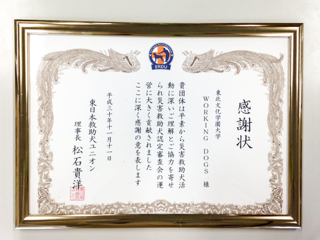 ERDU
感謝状
東北文化学園大学
WORKING DOGS 様
貴団体は平素から災害救助犬活
動に深いご理解とご協力を寄せ
られ災害救助犬認定審査会の運
営に大きく貢献されました
ここに深く感謝の意を表します
平成三十年十一月十一日
東日本救助犬ユニオン
理事長 松石貴洋